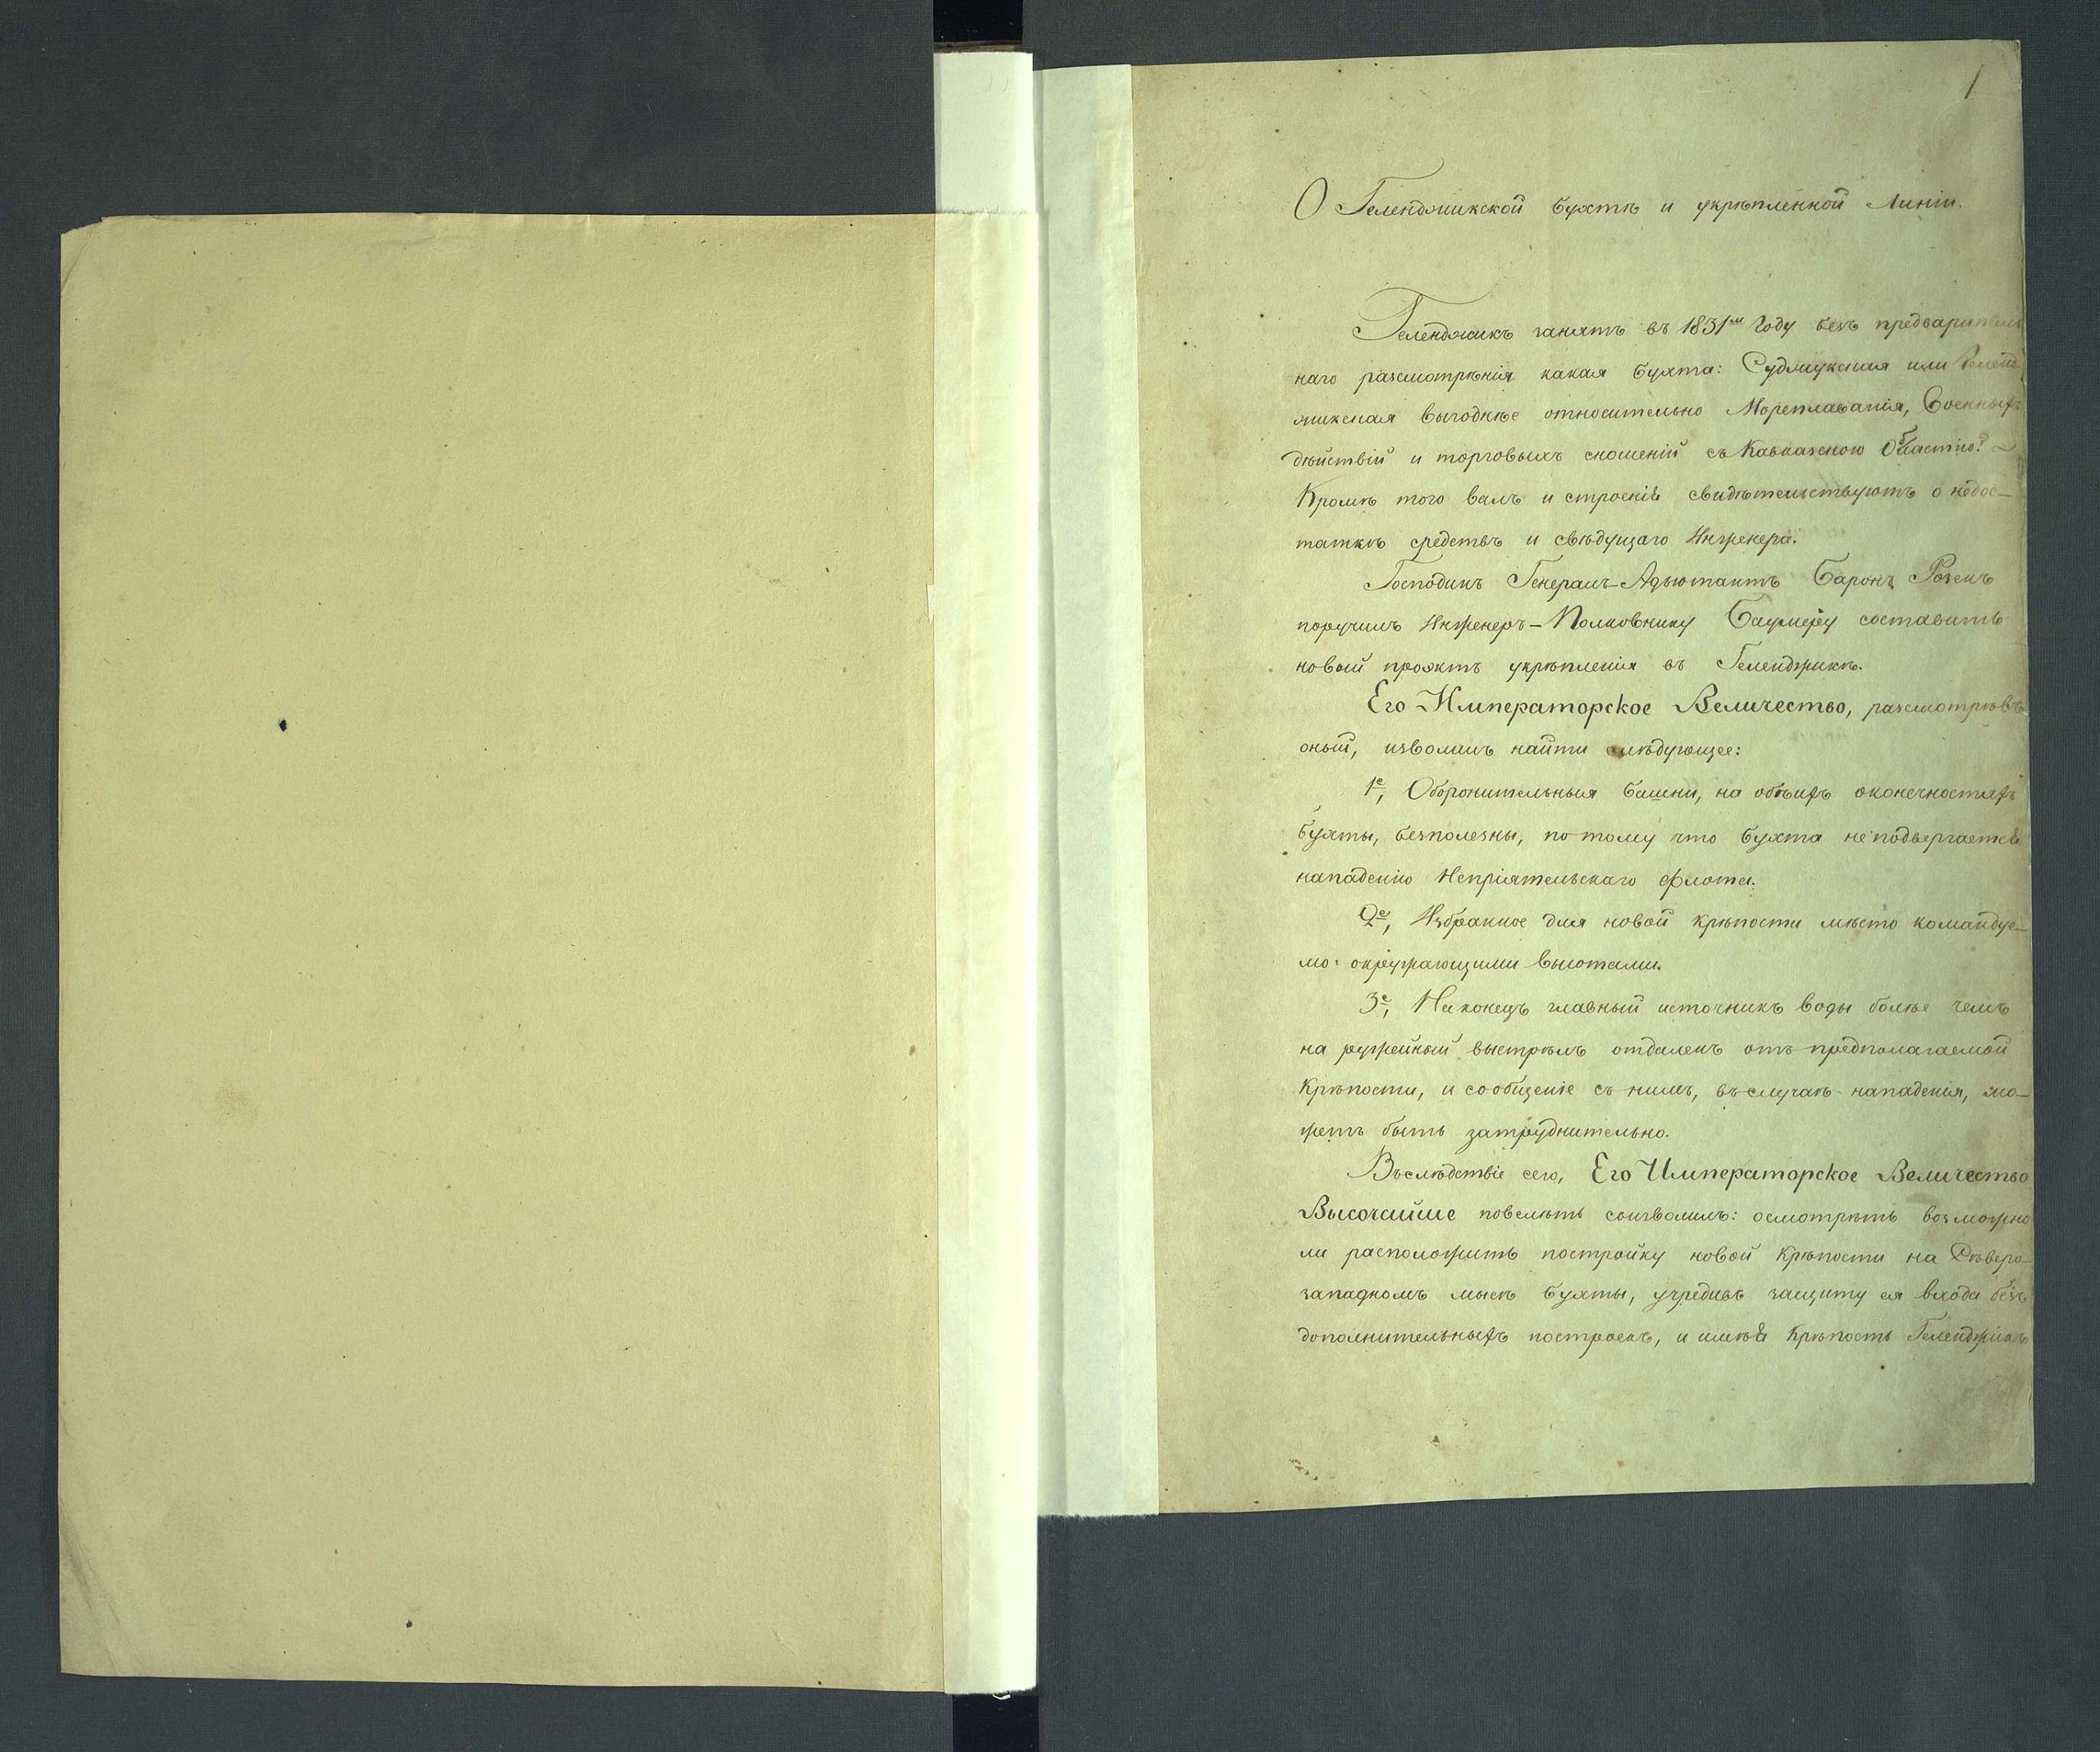 1
О Геленджикской бухтѣ и укрѣпленной линіи.
Геленджикъ занятъ въ 1831мъ Году безъ предваритель
наго разсмотрѣнія какая бухта: Суджукская или Гелен
жикская выгоднѣе относительно Мореплаванія, Военныхъ
дѣйствій и торговыхъ сношеній съ Кавказскою Областію? ~
Кромѣ того валъ и строенія свидѣтельствуютъ о недос-
таткѣ средствъ и свѣдущаго Инженера.
Господинъ Генералъ-Адъютантъ Баронъ Розенъ
поручилъ Инженеръ-Полковнику Баумеру составить
новый проэктъ укрѣпленія въ Геленджикѣ.
Его Императорское Величество, разсмотрѣвъ
оный, изволилъ найти слѣдующее:
1е, Оборонительныя башни, на обѣихъ оконечностяхъ
бухты, безполезны, по тому что бухта не подвергается
нападенію Непріятельскаго флота.
2е, Избранное для новой крѣпости мѣсто командуе-
мо окружающими высотами.
3е, На конецъ главный источникъ воды болѣе чемъ
на ружейный выстрѣлъ отдаленъ отъ предполагаемой
Крѣпости, и сообщеніе съ нимъ, въ случаѣ нападенія, мо-
жетъ быть затруднительно.
Въслѣдствіе сего, Его Императорское Величество
Высочайше повелѣть соизволилъ: осмотрѣть возможно
ли расположить постройку новой Крѣпости на Сѣверо-
западномъ мысѣ бухты, учредивъ защиту ея входа безъ
дополнительныхъ построекъ, и имѣя Крѣпость Геленджикъ